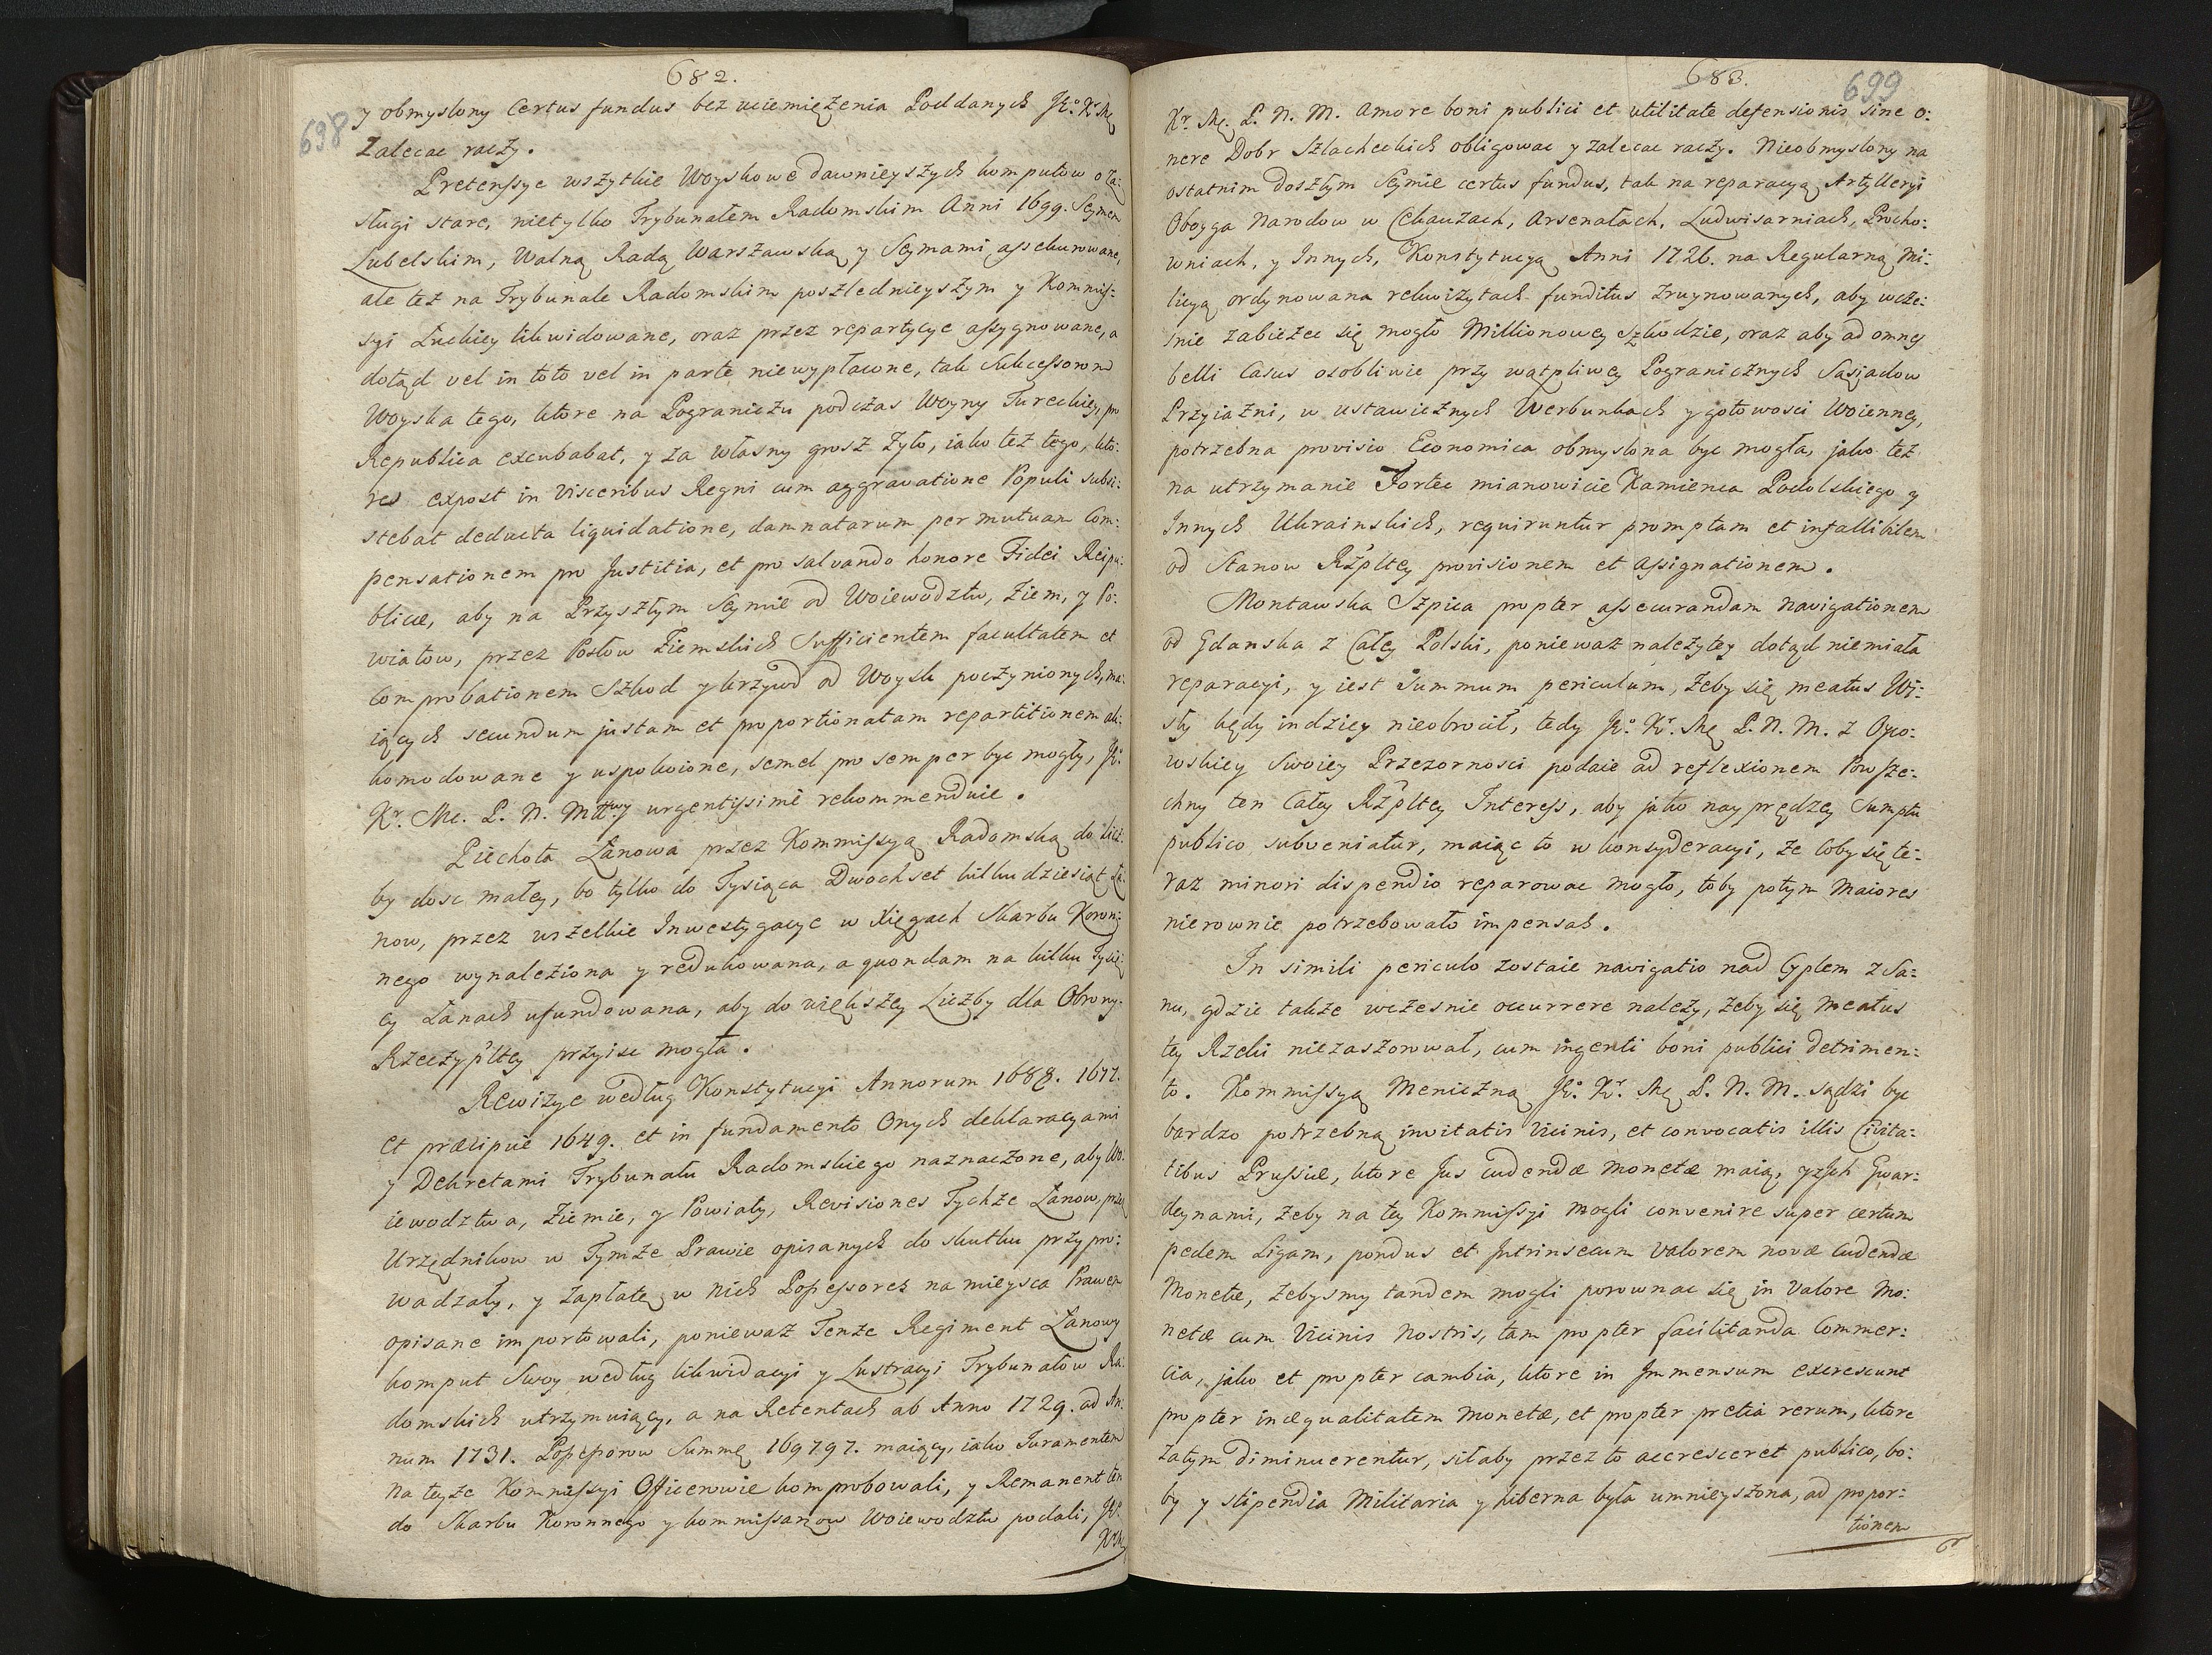 682.
698
y obmyslony Certus fundus bez uciemiężenia Poddanych JKo. Kr. Mę
Zalecac raczy.
Pretensye wszytkie Woyskowe dawnieyszych komputow o Za:
sługi stare, nietylko Trybunałem Radomskim Anni 1699. Seymem
Lubelskim, Walną Radą Warszawską y Seymami assekurowane,
ale też na Trybunale Radomskim poszlednieyszym y Kommis:
syi Łuckiey likwidowane, oraz przez repartycye assygnowane, a
dotąd vel in toto vel in parte niewypłacone, tak Sukcessorom
Woyska tego, ktore na Pograniczu podczas Woyny Tureckiey, pro
Republica excubabat, y za własny grosz żyło, iako też tego, kto:
res expost in Visceribus Regni cum aggravatione Populi subsi:
stebat deducta liquidatione, damnatarum per mutuam Com:
pensationem pro Justitia, et pro salvando honore Fidei Reipu:
blicæ, aby na Przyszłym Seymie od Woiewodztw, Ziem, y Po:
wiatow, przez Posłow Ziemskich Sufficientem facultatem et
Comprobationem Szkod y krzywd od Woysk poczynionych, ma:
iących secundum justam et proportionatam repartitionem ak:
komodowane y uspokoione, semel pro semper byc mogły, JKo.
Kr. Mc. P. N. Młłwy urgentissimè rekommenduie.
Piechota Łanowa przez Kommissyą Radomską do licz:
by dosc małey, bo tylko do Tysiąca Dwochset kilkudziesiąt Ła:
now, przez wszelkie Inwestygacye w Xięgach Skarbu Koron:
nego wynaleziona y redukowana, a quondam na kilku Tysię:
cy Łanach ufundowana, aby do większey Liczby dla Obrony
Rzeczyplltey przyisc mogła.
Rewizye według Konstytucyi Annorum 1688. 1677.
et præcipuè 1649. et in fundamento Onych deklaracyami
y Dekretami Trybunału Radomskiego naznaczone, aby Wo:
iewodztwa, Ziemie, y Powiaty, Revisiones Tychże Łanow, przez
Urzędnikow w Tymże Prawie opisanych do skutku przypro:
wadzały, y zapłatę w nich Possessores na mieysca Prawem
opisane importowali, ponieważ Tenże Regiment Łanowy
komput Swoy według likwidacyi y Lustracyi Trybunałow Ra:
domskich utrzymuiący, a na Retentach ab Anno 1729. ad An:
num 1731. Possessorow Summę 169797. maiący, iako Juramentem
na teyże Kommissyi Officerowie komprobowali, y Remanent ten
do Skarbu Koronnego y kommissarzow Woiewodztw podali, JKo.
Kr. Mę
683.
699
Kr. Mę. P. N. M. Amore boni publici et utilitate defensionis sine o:
nere Dobr Szlacheckich obligowac y zalecac raczy. Nieobmyslony na
ostatnim doszłym Seymie certus fundus, tak na reparacyą Artylleryi
Oboyga Narodow w Cekauzach, Arsenałach, Ludwisarniach, Procho:
wniach, y Innych, Konstytucyą Anni 1726. na Regularną Mi:
licyą ordynowana rekwizytach funditus zruynowanych, aby wcze:
snie zabieżec się mogło Millionowey Szkodzie, oraz aby ad omnes
belli Casus osobliwie przy wątpliwey Pogranicznych Sąsiadow
Przyiazni, w ustawicznych Werbunkach y gotowosci Woienney,
potrzebna provisio Economica obmyslona byc mogła, jako też
na utrzymanie Fortec mianowicie Kamienca Podolskiego y
Innych Ukrainskich, requiruntur promptam et infallibilem
od Stanow Rzpltey provisionem et assignationem.
Montawska Szpica propter assecurandam navigationem
od Gdanska z Całey Polski, ponieważ należytey dotąd niemiała
reparacyi, y iest Summum periculum, żeby się meatus Wi:
sły kędy indziey nieobrocił, tedy JKo. Kr. Mę P. N. M. z Oyco:
wskiey Swoiey Przezornosci podaie ad reflexionem Powsze:
chny ten Całey Rzpltey Interess, aby jako nayprędzey Sumptu
publico subveniatur, maiąc to w konsyderacyi, że coby się te:
raz minori dispendio reparowac mogło, toby potym Maiores
nierownie potrzebowało impensas.
In simili periculo zostaie navigatio nad Cyplem z Sa:
nu, gdzie także wczesnie occurrere należy, żeby się Meatus
tey Rzeki niezaszorował, cum ingenti boni publici detrimen:
to. Kommissyą Meniczną JKo. Kr. Mę P. N. M. sądzi byc
bardzo potrzebną invitatis Vicinis, et convocatis illis Civita:
tibus Prussiæ, ktore Jus cudendæ Monetæ maią, y z Jch Gwar:
deynami, żeby na tey Kommissyi mogli convenire super certum
pedem Ligam, pondus et Jntrinsecum Valorem novæ Cudendæ
Monetæ, żebysmy tandem mogli porownac się in Valore Mo:
netæ cum Vicinis Nostris, tam propter facilitanda Commer:
cia, jako et propter cambia, ktore in Jmmensum excrescunt
propter inæqualitatem Monetæ, et propter pretia rerum, ktore
zatym diminuerentur, siłaby przez to accresceret publico, bo:
by y stipendia Militaria y hiberna była umnieyszona, ad propor:
tionem